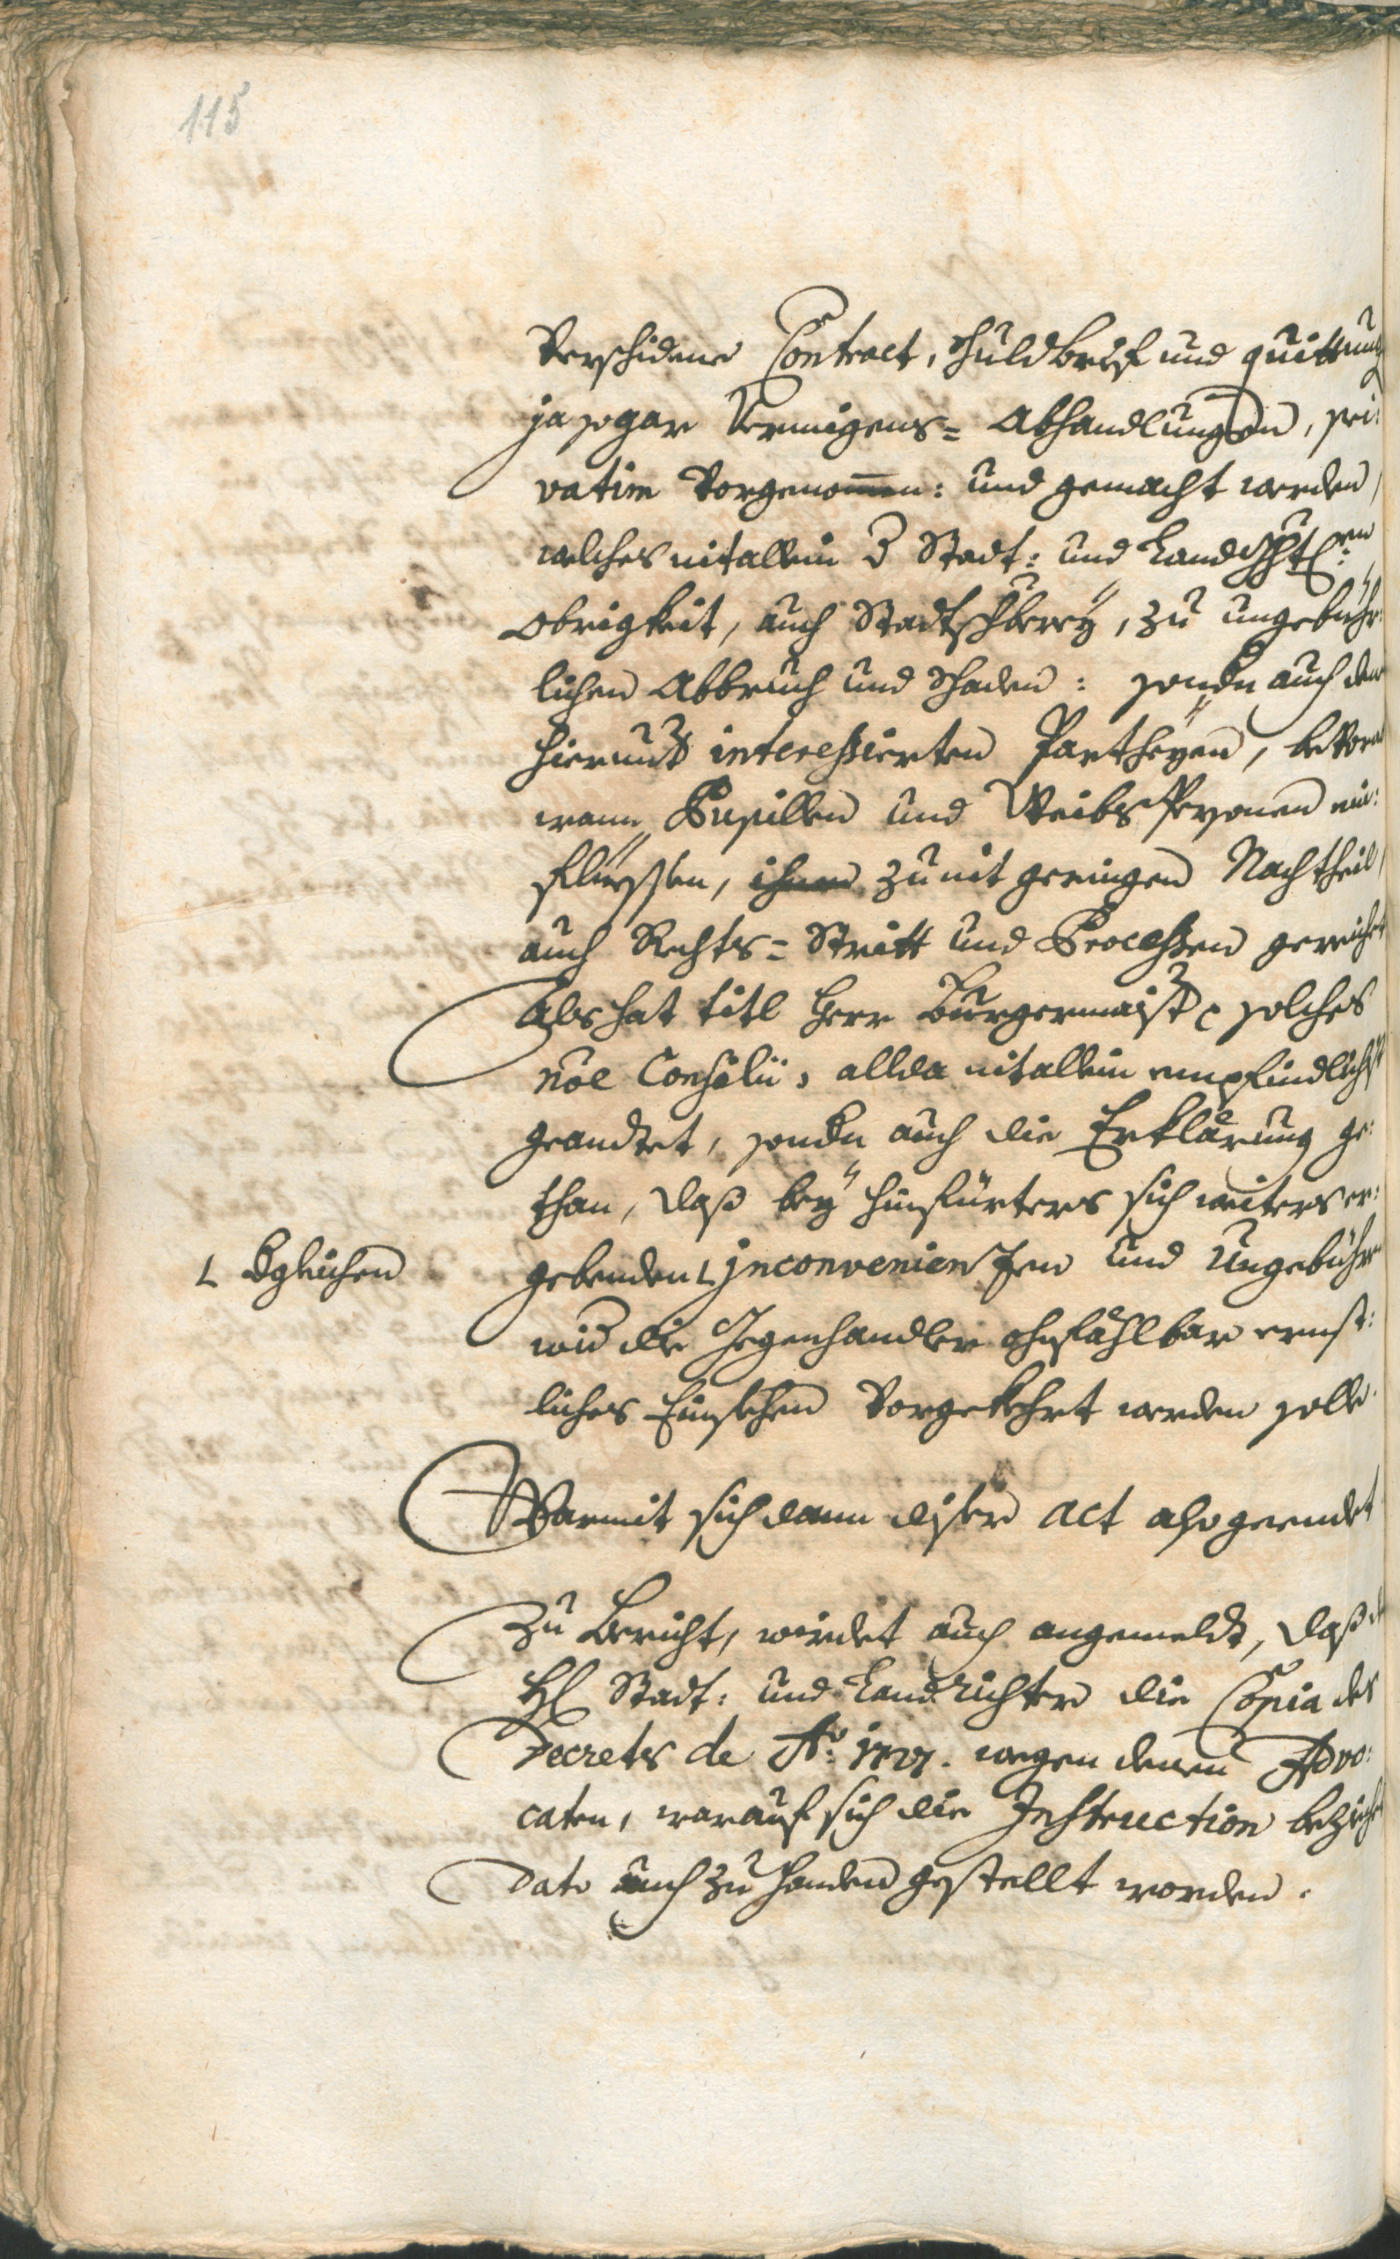 115
Verschidene Contract, schuldbrief und quittung
ja sogar Vermigens= Abhandlungen, pri:
vatim Vorgenommen: und gemacht werden,
welches nitallein d Stadt: und Landtgchtl:en
Obrigkeit, auch Stadtschreiberey, zu ungebühr:
lichen Abbruch und schaden: sondn auch den
hierundt interessierten Partheyen, bevorab
wann Pupillen und WeibsPersonen ein:
fliessen, ihnen zu nit geringen Nachtheil,
auch Rechts= Stritt und Processen gereichet
Als hat titl herr Burgermaistr solches
noe Consilii, allda nitallein empfindlichst
geandtet, sondn auch die Erklärung ge:
than, daß bey hinfürters sich weiters er:
L dgleichen
gebenden L inconvenienzen und Ungebühr
wid die Gegenhandler ohnfählbar ernst:
liches Einsehen Vorgekehrt werden solle.
Warmit sich dann diser Act also geendet
Zu Bericht, wirdet auch angemeldt, daß d
H Stadt: und Landrichter die Copia des
Decrets de Ao: wegen denen Advo:
caten, worauf sich die Instruction beziehet
Dato auch zu handen gestellt worden.